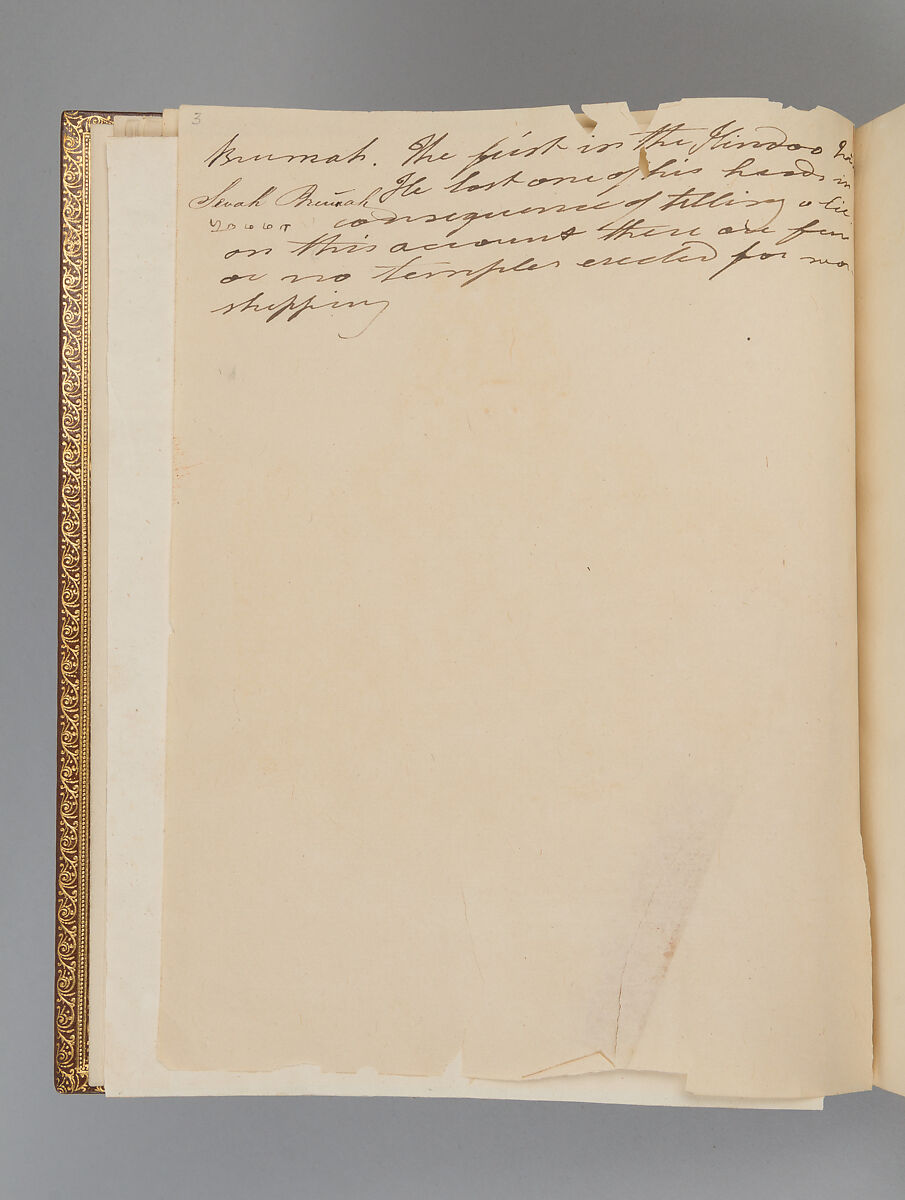 3
Brumah. The first in the Hindoo
Sevah Brumah He lost one of his heads in
consequence of telling a lie
on this account there are few
or no temples erected for wor
shipping